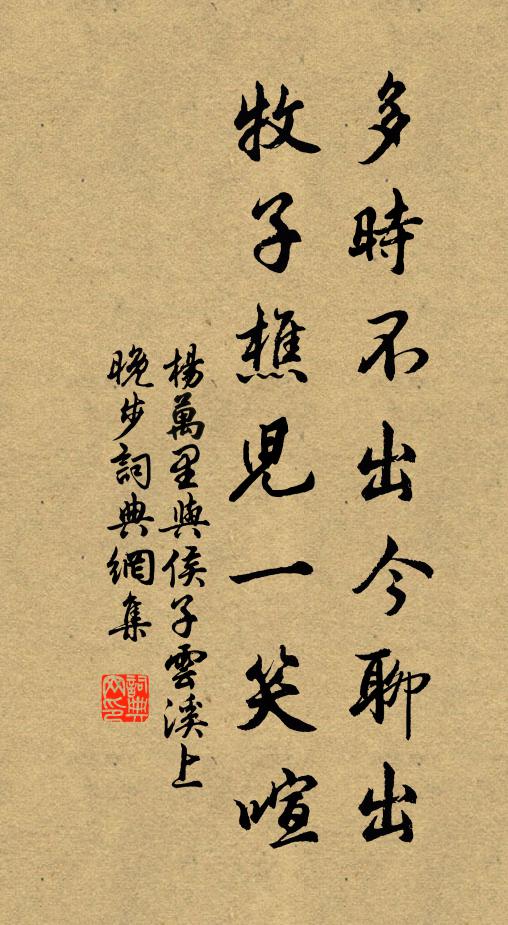 多時不出今聊出
牧子樵兒一笑喧
楊萬里與侯子雲溪上
晚步詞典網集
詞典網印